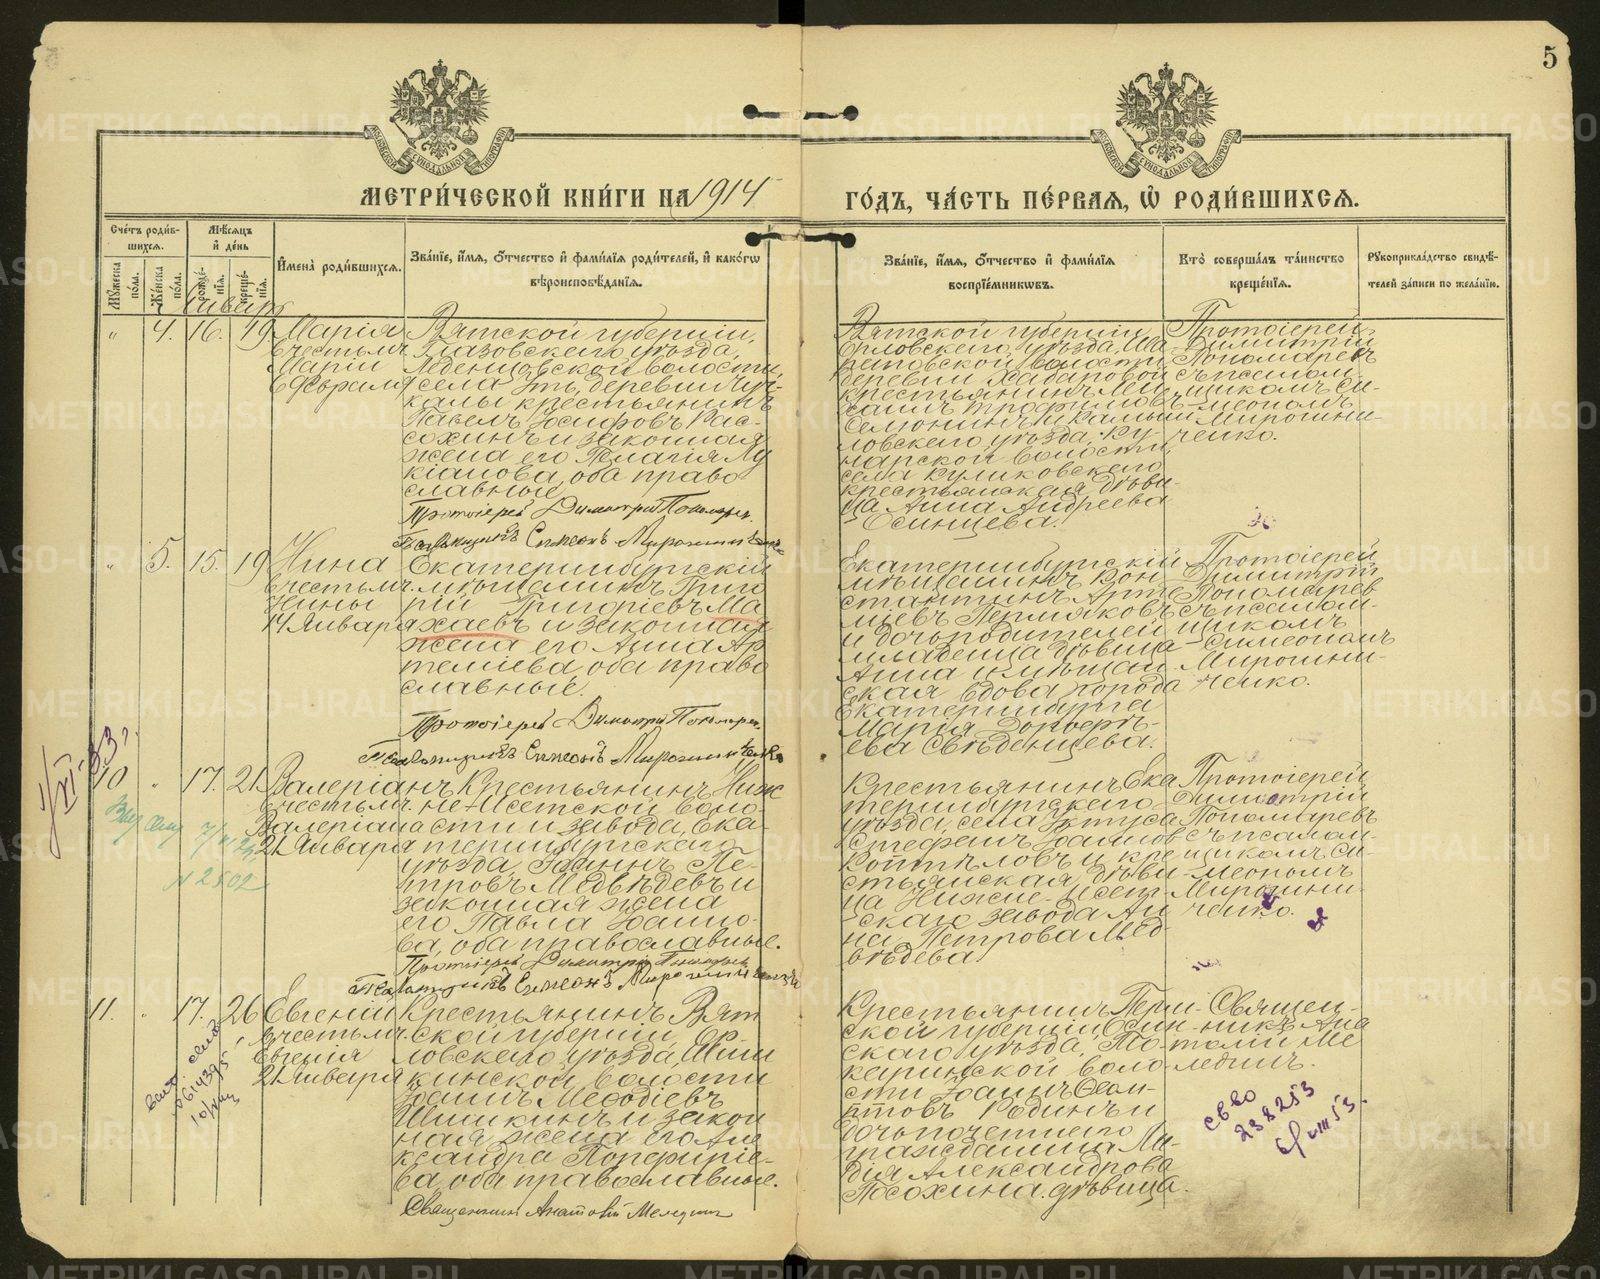 5
МЕТРИ́ЧЕСКОЙ КНИ́ГИ НА 1914 ГО́ДЪ, ЧА́СТЬ ПЕ́РВАЯ, Ѡ РОДИ́ВШИХСЯ.
Сче́тъ роди́в-
шихся.
Му́жеска по́ла.
Же́нска по́ла.
Мѣ́сяцъ
и де́нь
рожде́-
нія.
креще́-
нія.
Имена̀ роди́вшихся.
Зва́ніе, и́мя, о́тчество и фами́лія роди́телей, и како́гѡ
вѣроисповѣ́данія.
Зва́ніе, и́мя, о́тчество и фами́лія
воспріе́мникѡвъ.
Кто̀ соверша́лъ та́инство
креще́нія.
Рукоприкла́дство свидѣ́-
телей за́писи по жела́нію.
Январь
" 4. 16. 19.
Марія
въ честь м.
Маріи
Вятской губерніи,
Глазовскаго уѣзда,
Леденцовской волости,
села Утъ, деревни Чу-
калы крестьянинъ
Павелъ Іосифовъ Рас-
сохинъ и законная
жена его Пелагія Лу
кіанова, оба право
славные.
Протоіерей Димитрій Пономарев.
Псаломщикъ Симеонъ Мирошниченко
Вятской губерніи
Орловскаго уѣзда, Ша-
деревни Хабаровой
крестьянинъ Ми-
хаилъ Трофимовъ
Селюнинъ и Камыш
ловскаго уѣзда, Ку-
нарской волости,
села Куликовскаго
крестьянская дѣви-
ца Анна Андреева
Осинцева.
Протоіерей
Димитрій
Пономаревъ
съ псалом-
щикомъ Си-
меономъ
Мирошни-
ченко.
" 5. 15. 19
Нина
въ честь м.
Нины
14 Января
Екатеринбургскій
мѣщанинъ Григо
рій Григоріевъ Ма
хаевъ и законная
жена его Анна Ар
теміева, оба право
славные.
Протоіерей Димитрій Пономарев.
Псаломщикъ Симеонъ Мирошниченко
Екатеринбургскій
мѣщанинъ Кон-
стантинъ Арте
міевъ Пермяковъ
и дочь родителей
младенца дѣвица
Анна и мѣщан
ская вдова города
Екатеринбурга
Марія Дороѳе-
ева Свѣденцева.
Протоіерей
Димитрій
Пономарев
съ псалом-
щикомъ
Симеономъ
Мирошни-
ченко.
10 " 17. 21.
Валеріанъ
въ честь м.
Валеріана
21 Января
Крестьянинъ Ниж
не-Исетской воло-
сти и завода, Ека-
теринбургскаго
уѣзда Іоаннъ Пе-
тровъ Медвѣдевъ и
законная жена
его Павла Іоанно-
ва, оба православные.
Протоіерей Димитрій Пономарев
Псаломщикъ Симеонъ Мирошниченко
Крестьянинъ Ека
теринбургскаго
уѣзда, села Уктуса
Стефанъ Іоанновъ
и кре
стьянская дѣви-
ца Нижне-Исет-
скаго завода Ан
на Петрова Мед-
вѣдева.
Протоіерей
Димитрій
Пономаревъ
съ псалом-
щикомъ Си-
меономъ
Мирошни-
ченко.
N 2502
11. " 17. 26
Евгеній
въ честь м.
Евгенія
21 Января
Крестьянинъ Вят
ской губерніи, Ор-
ловскаго уѣзда, Шиш
кинской волости
Іоаннъ Меѳодіевъ
Шишкинъ и закон
ная жена его Але
ксандра Порфиріе-
ва, оба православные.
Священникъ Анатолій Меледин
Крестьянинъ Перм-
ской губерніи Осин-
скаго уѣзда,
воло-
сти Іоаннъ
Родинъ и
дочь почетнаго
гражданина Ли-
дія Александрова
Посохина дѣвица.
Священ-
никъ Ана
толій Ме
лединъ.
238253